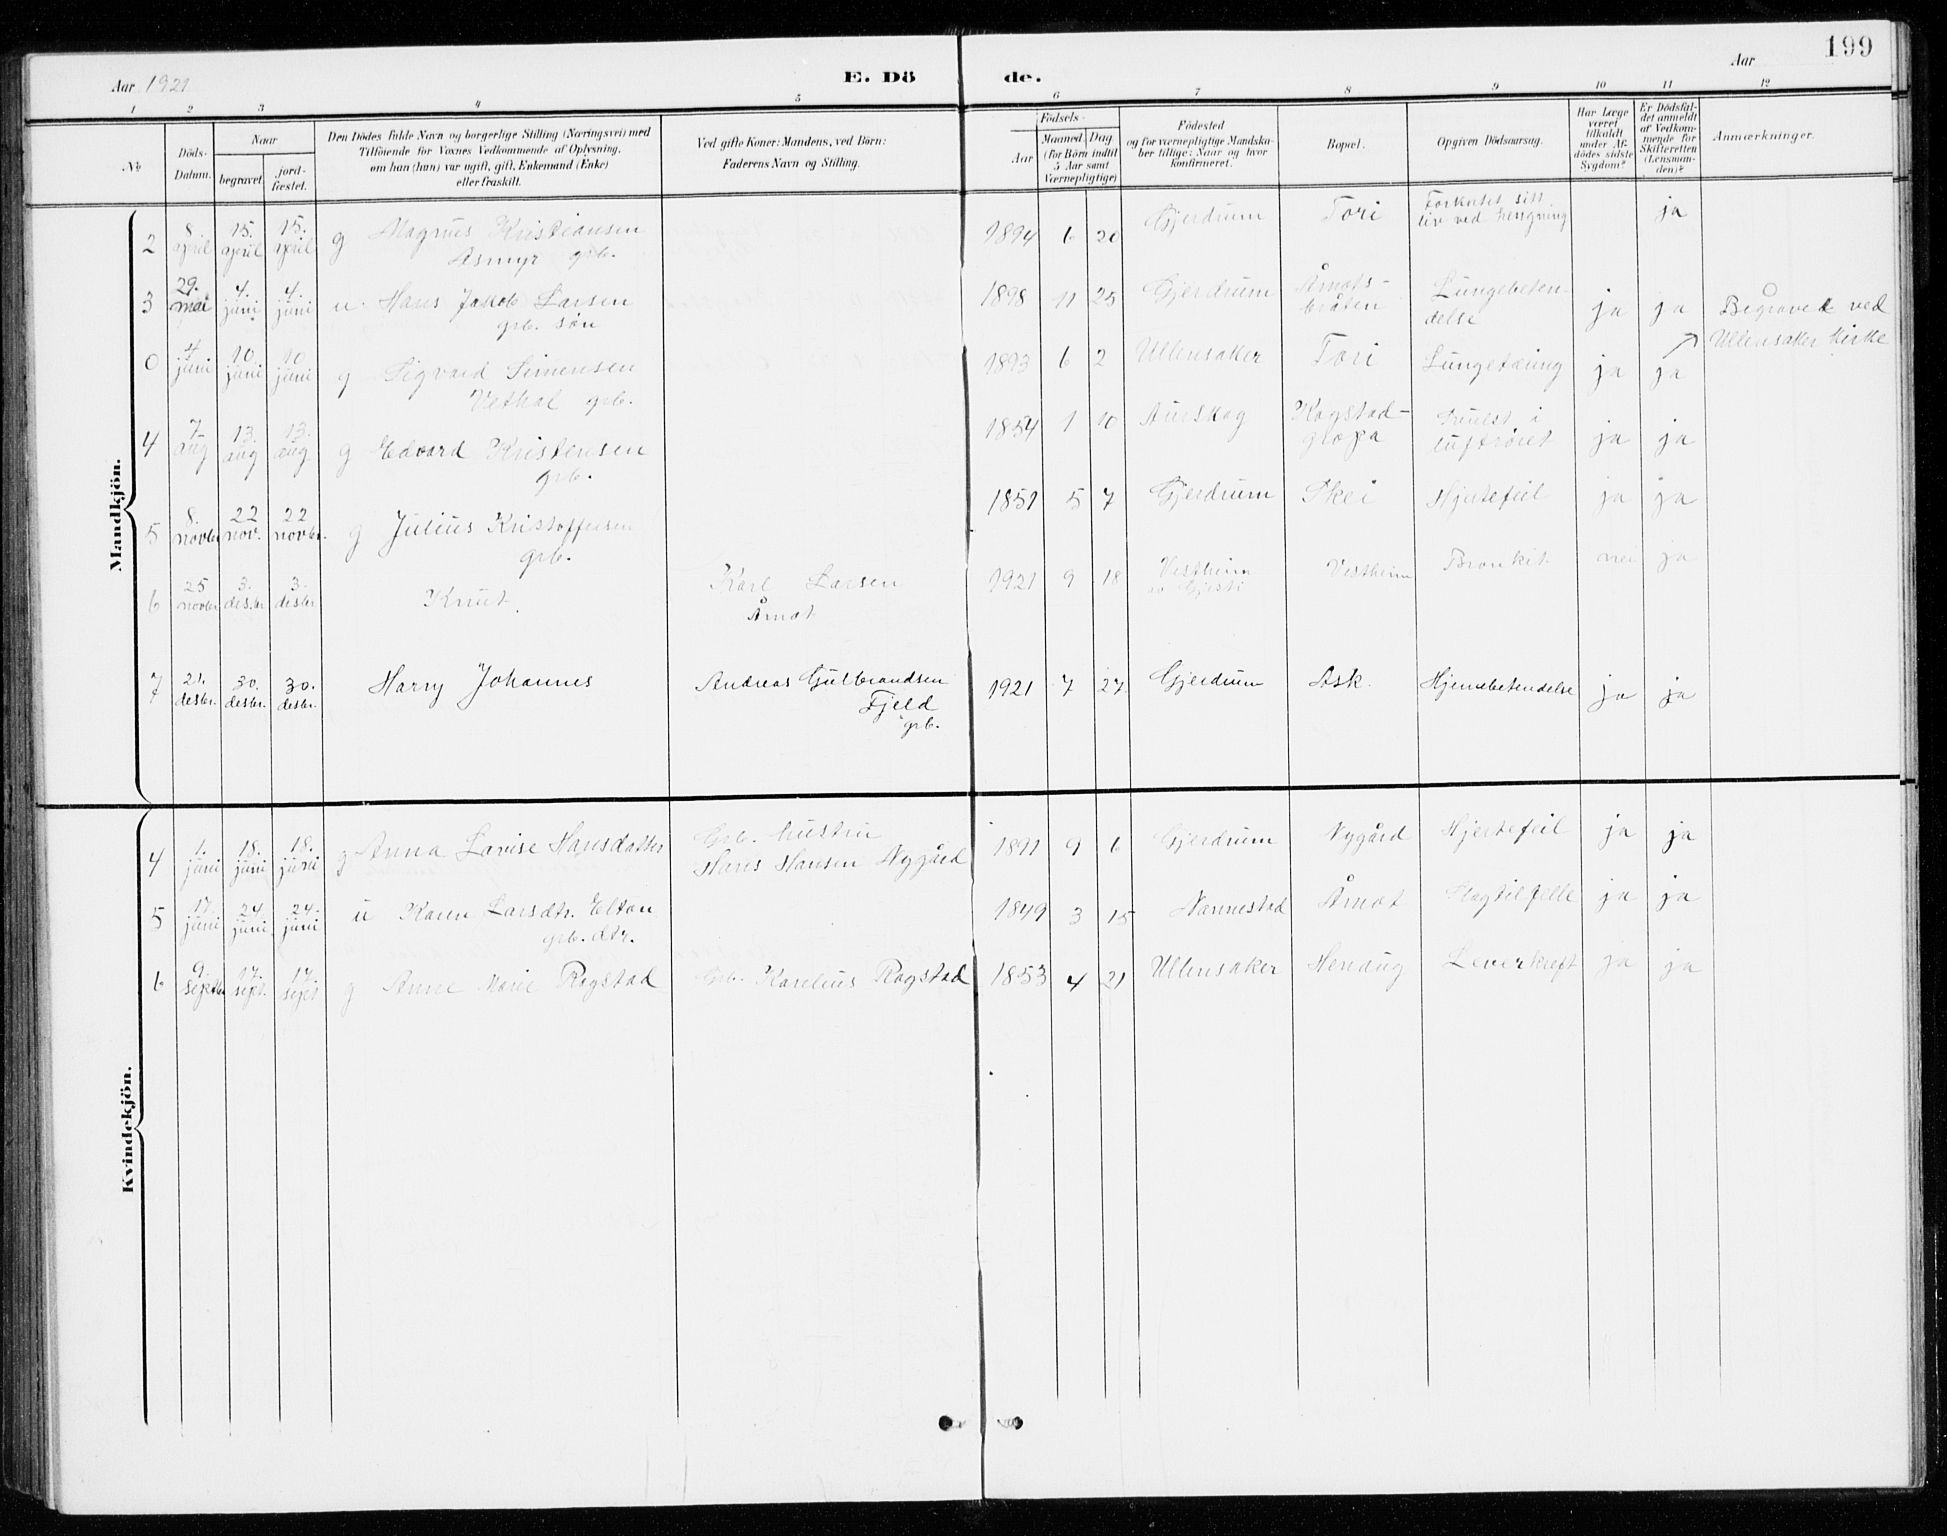 199
Aar 1921
E. Dö de.
Aar
1 2 3 4 5 6 7 8 9 10 11 12
No
Döds-Datum.
Naar
begravet.
jord-fæstet.
Den Dödes fulde Navn og borgerlige Stilling (Næringsvei) med
Tilföiende for Voxnes Vedkommende af Oplysning,
om han (hun) var ugift, gift, Enkemand (Enke)
eller fraskilt.
Ved gifte Koner: Mandens, ved Börn:
Faderens Navn og Stilling.
Födsels-
Aar
Maaned Dag
(for Börn indtil
5 Aar samt
Værnepligtige)
Födested
og for værnepligtige Mandska-
ber tillige: Naar og hvor
konfirmeret.
Bopæl.
Opgiven Dödsaarsag.
Har Læge
været
tilkaldt
under Af-
dödes sidste
Sygdom?
Er Dödsfal-
det anmeldt
af Vedkom-
mende for
Skifteretten
(Lensman-
den)?
Anmærkninger.
Mandkjön.
2 8. april 15. april 15. april g Magnus Kristiansen Asmyr grb. 1894 6 20 Gjerdrum Tori Forkortet sitt liv ved hengning ja
3 29. mai 4. juni 4. juni u Hans Jakob Larsen grb. søn 1898 11 25 Gjerdrum Årnots-bråten Lungebeten-delse ja ja Begravet ved Ullensaker kirke
0 4 juni 10 juni 10 juni g Sigvard Simensen Vethal grb. 1893 6 2 Ullensaker Tori Lungetæring ja ja
4 7. aug 13. aug 13. aug g Edvard Kristensen grb. 1854 1 10 Aurskog Rogstad- i luftrøret ja ja
5 8. novbr 22 nov. 22 novbr. g Julius Kristoffersen grb. 1851 5 7 Gjerdrum Skei Hjertefeil ja ja
6 25 novbr 3. desbr 3. desbr Knut. Karl Larsen Årnot 1921 9 18 Vestheim Vestheim Bronkit nei ja
7 21. desbr. 30. desbr. 30. desbr. Harry Johannes Andreas Gulbrandsen Fjeld grb. 1921 7 27 Gjerdrum Ask. Hjernebetendelse ja ja
Kvindekjön.
4 1. juni 18. juni 18. juni g Anna Lovise Hansdatter Grb. hustru Hans Hansen Nygård 1891 9 6 Gjerdrum Nygård Hjertefeil ja ja
5 17. juni 24. juni 24. juni u Karen Larsdtr. Elton grb. dtr. 1849 3 15 Nannestad Årnot Slagtilfelle ja ja
6 9. septbr 17. sept. 17. sept g Anne Marie Rogstad Grb. Karelius Rogstad 1853 4 21 Ullensaker Leverkreft ja ja